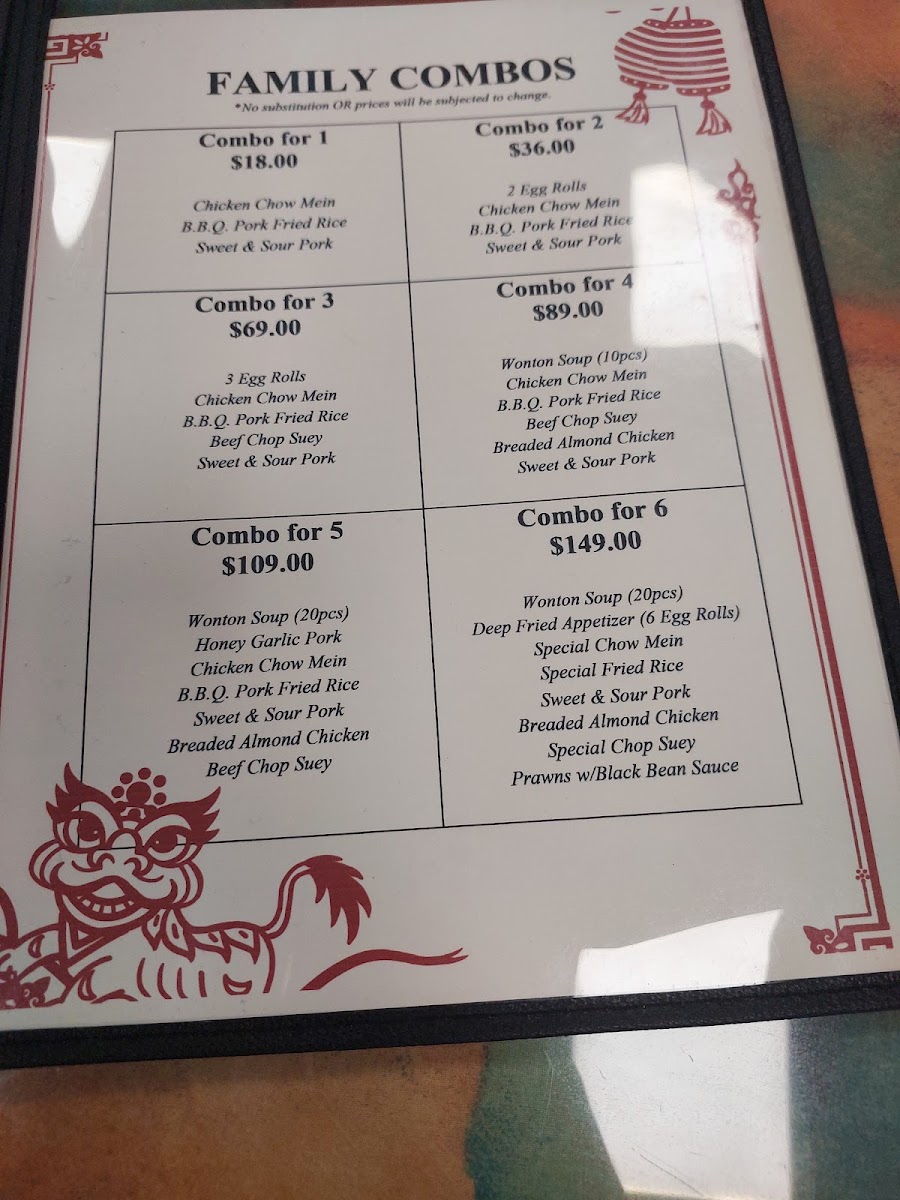 FAMILY COMBOS
*No substitution OR prices will be subjected to change.
Combo for 1
$18.00
Chicken Chow Mein
B.B.Q. Pork Fried Rice
Sweet & Sour Pork
Combo for 2
$36.00
2 Egg Rolls
Chicken Chow Mein
B.B.Q. Pork Fried Rice
Sweet & Sour Pork
Combo for 3
$69.00
3 Egg Rolls
Chicken Chow Mein
B.B.Q. Pork Fried Rice
Beef Chop Suey
Sweet & Sour Pork
Combo for 4
$89.00
Wonton Soup (10pcs)
Chicken Chow Mein
B.B.Q. Pork Fried Rice
Beef Chop Suey
Breaded Almond Chicken
Sweet & Sour Pork
Combo for 5
$109.00
Wonton Soup (20pcs)
Honey Garlic Pork
Chicken Chow Mein
B.B.Q. Pork Fried Rice
Sweet & Sour Pork
Breaded Almond Chicken
Beef Chop Suey
Combo for 6
$149.00
Wonton Soup (20pcs)
Deep Fried Appetizer (6 Egg Rolls)
Special Chow Mein
Special Fried Rice
Sweet & Sour Pork
Breaded Almond Chicken
Special Chop Suey
Prawns w/Black Bean Sauce